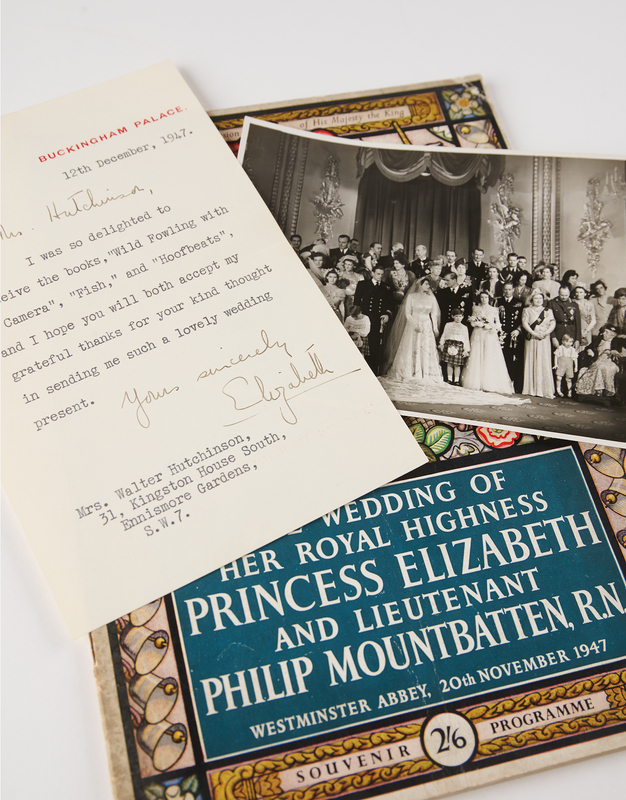 BUCKINGHAM PALACE.
12th December, 1947.
Mrs. Hutchinson,
I was so delighted to
the books,"Wild Fowling with
Camera", "Fish," and "Hoofbeats",
and I hope you will both accept my
grateful thanks for your kind thought
in sending me such a lovely wedding
present.
Yours sincerely
Elizabeth
Mrs. Walter Hutchinson,
31, Kingston House South,
Ennismore Gardens,
S.W.7.
of His Majesty the King
WEDDING OF
HER ROYAL HIGHNESS
PRINCESS ELIZABETH
AND LIEUTENANT
PHILIP MOUNTBATTEN, R.N.
WESTMINSTER ABBEY, 20th NOVEMBER 1947
SOUVENIR 2/6 PROGRAMME